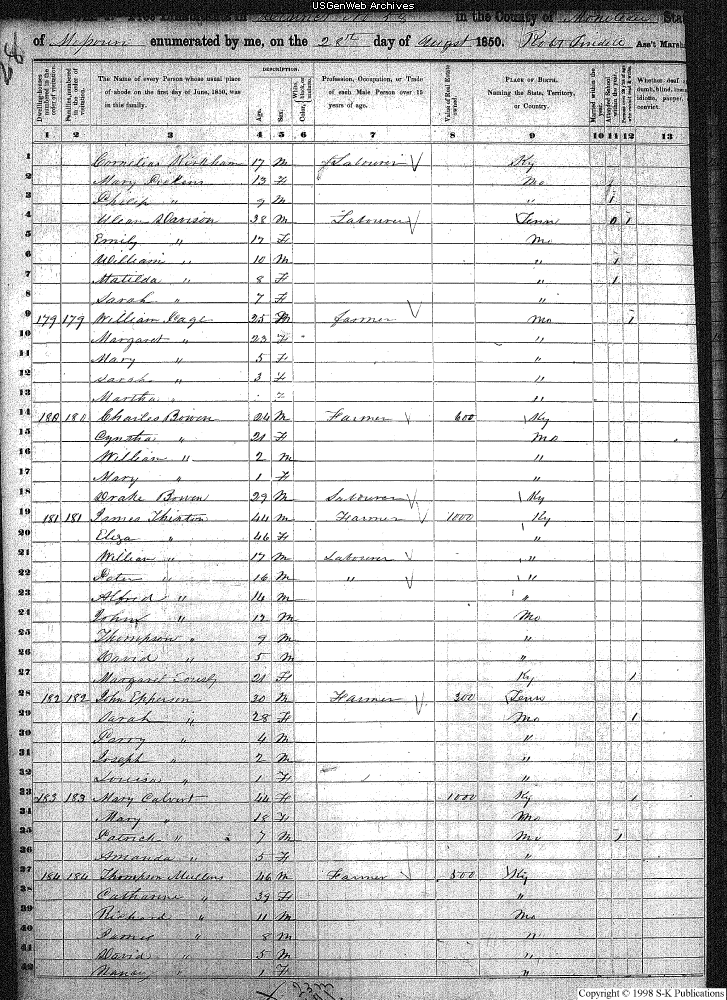 USGenWeb Archives
in the County of Moniteau State
of Missouri enumerated by me, on the 28th day of August 1850. Ass't Marsh
DESCRIPTION.
Dwelling-houses numbered in the order of visitation.
Families numbered in the order of visitation.
The Name of every Person whose usual place of abode on the first day of June, 1850, was in this family.
Age.
Sex.
Color, White, black, or mulatto.
Profession, Occupation, or Trade of each Male Person over 15 years of age.
Value of Real Estate owned.
PLACE OF BIRTH. Naming the State, Territory, or Country.
Married within the year.
Attended School within the year.
Whether deaf dumb, blind, insane idiotic, pauper, convict.
1 2 3 4 5 6 7 8 9 10 11 12 13
1 Cornelius Kirkham 17 M Labourer Ky
2 Mary 13 F Mo
3 Philip " 9 M " 1
4 Davison 28 M Labourer Tenn 1
5 Emily " 17 F Mo
6 William " 10 M " 1
7 Matilda " 8 F " 1
8 Sarah " 7 F "
9 179 179 William Page 25 M farmer Mo 1
10 Margaret " 23 F "
11 Mary " 5 F "
12 Sarah " 3 F "
13 Martha " "
14 180 180 Charles Bowen 24 M Farmer 600 Ky
15 Cyntha " 21 F Mo
16 William " 2 M "
17 Mary " 1 F "
18 Drake Bowen 29 M Labourer Ky
19 181 181 James Thinton 44 M Farmer 1000 Ky
20 Eliza " 46 F "
21 William " 17 M Labourer "
22 Peter " 16 M " "
23 Alfred " 14 M "
24 John " 12 M Mo
25 Thompson " 9 M "
26 David " 5 M "
27 Margaret 21 F Ky 1
28 182 182 John Epperson 30 M Farmer 300 Tenn
29 Sarah " 28 F Mo 1
30 Perry " 4 M "
31 Joseph " 2 M "
32 Louisa " 1 F "
33 183 183 Mary Calvert 44 F 1000 Ky 1
34 Mary " 18 F Mo
35 Patrick " 7 M Mo 1
36 Amanda " 5 F "
37 184 184 Thompson Mullens 46 M Farmer 500 Ky
38 Catharine " 39 F "
39 Richard " 11 M Mo
40 " 8 M "
41 David " 5 M "
42 Nancy " 1 F "
23 M
Copyright © 1998 S-K Publications